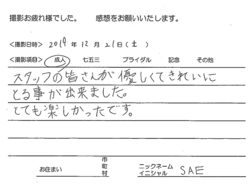 撮影お疲れ様でした。 感想をお願いいたします。
<撮影日時> 2019年 12月 21日(土)
<撮影項目> 成人 七五三 ブライダル 記念 その他
スタッフの皆さんが優しくてきれいに
とる事が出来ました。
とても楽しかったです。
お住まい 市町村 ニックネーム イニシャル SAE